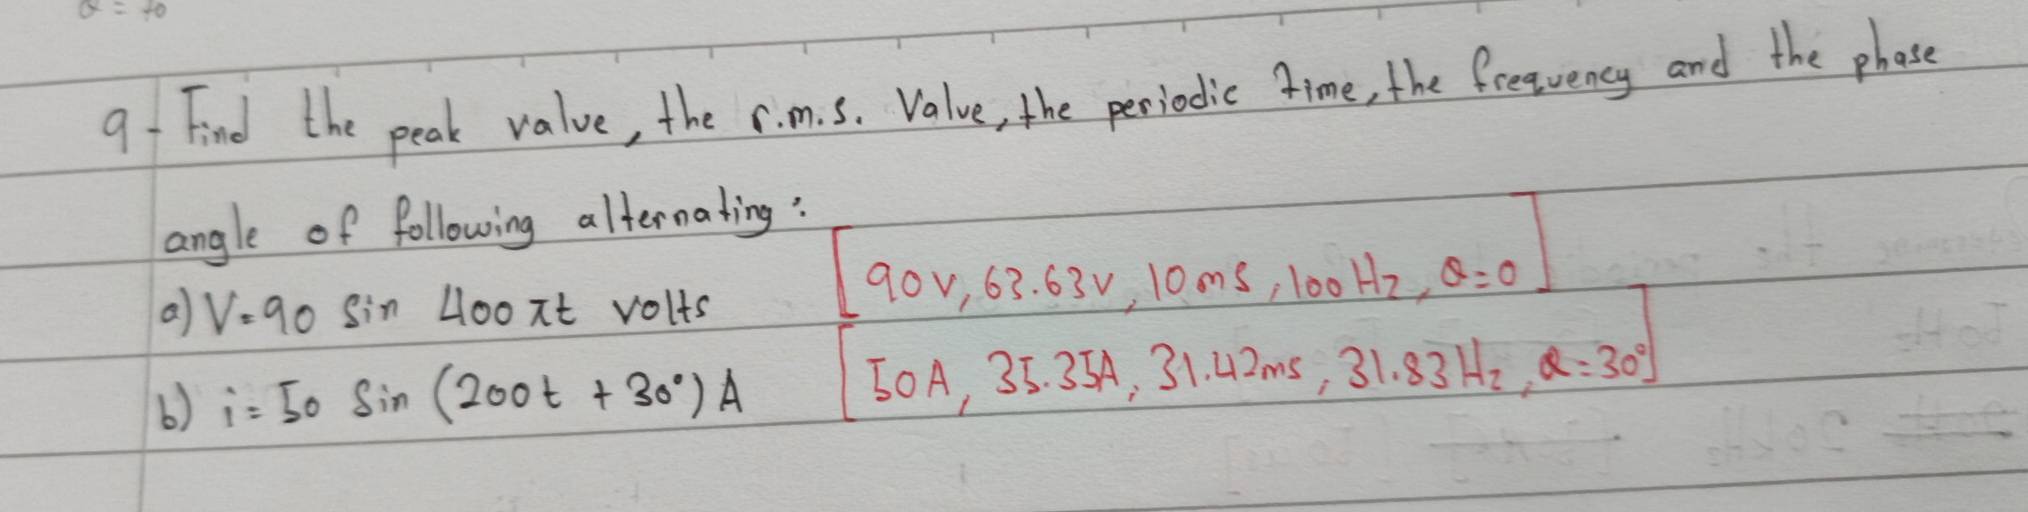 9- Find the peak value, the r.m.s. Value, the periodic time, the frequency and the phase
angle of following alternating:
a) V=90 Sin 400πt volts [90V, 63.63V, 10ms, 100Hz, Q=0]
b) i= 50 Sin (200t + 30°) A [50A, 35.35A, 31.42ms, 31.83Hz, Q=30°]